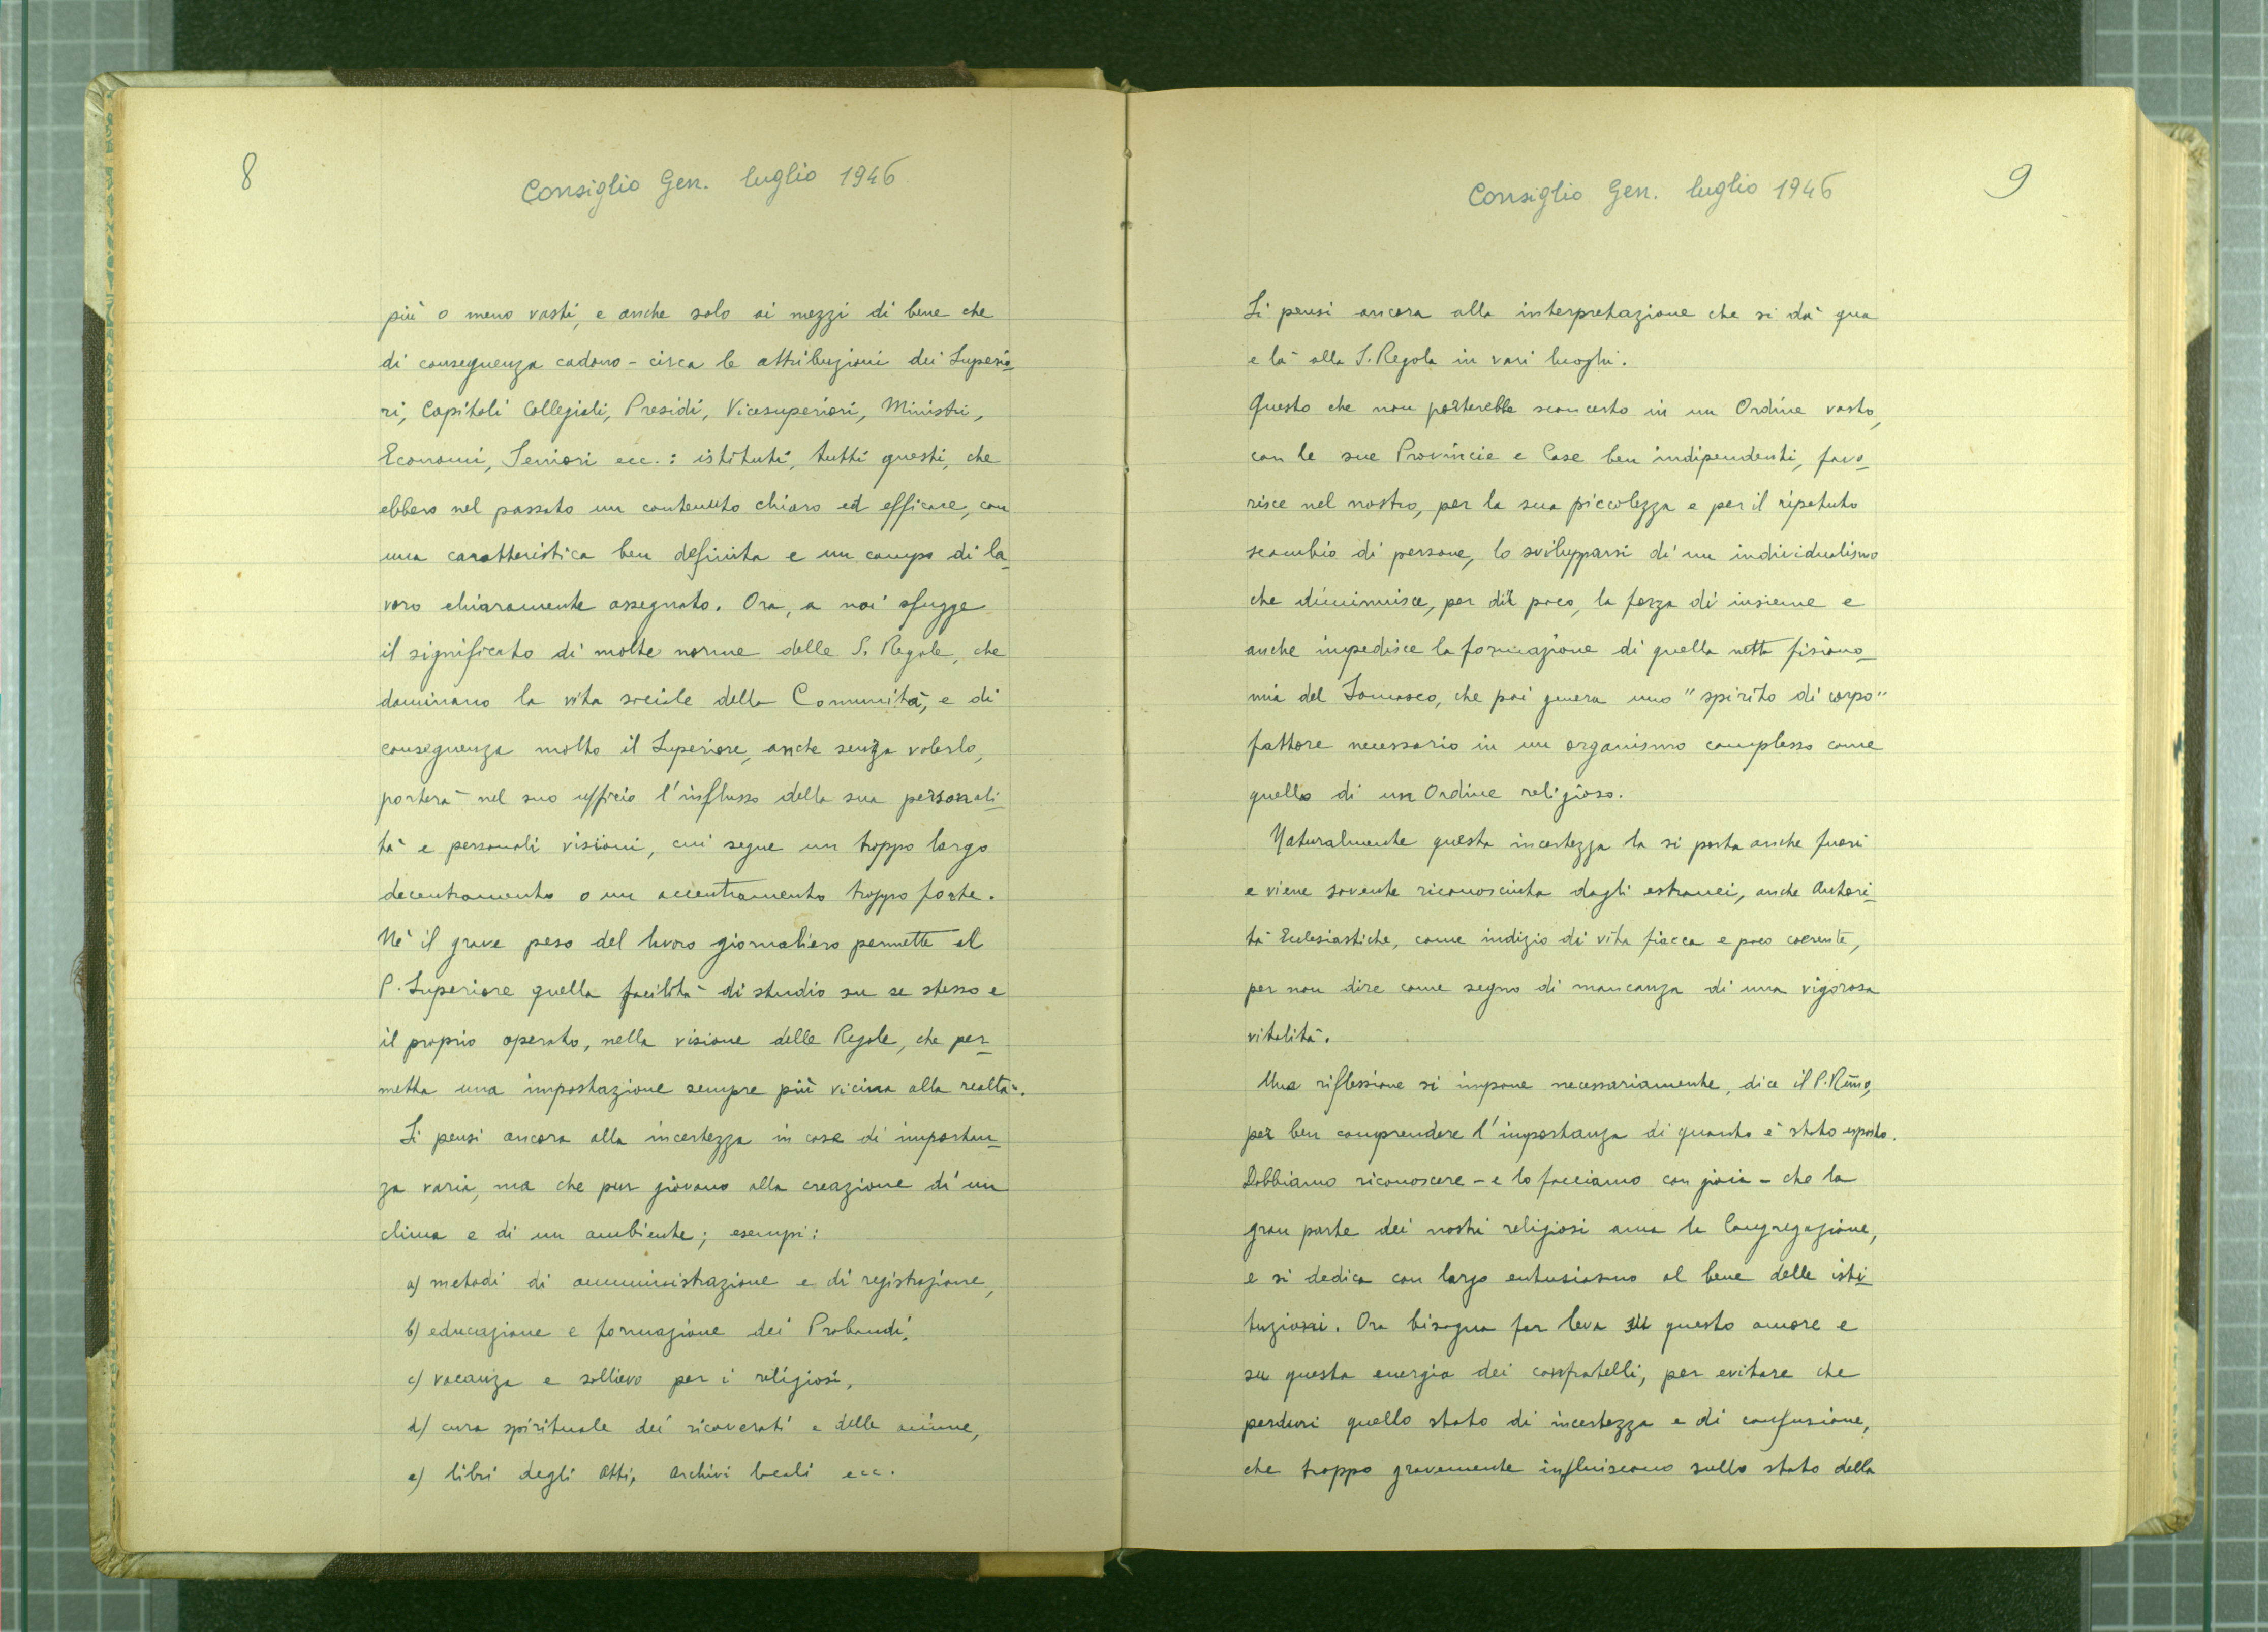 8
Consiglio Gen. luglio 1946
più o meno vasti, e anche solo ai mezzi di bene che
di conseguenza cadono - circa le attribuzioni dei Superio-
ri, Capitoli Collegiali, Presidi, Vicesuperiori, Ministri,
Economi, Seniori ecc.: istituti, tutti questi, che
ebbero nel passato un contenuto chiaro ed efficace, con
una caratteristica ben definita e un campo di la-
voro chiaramente assegnato. Ora, a noi sfugge
il significato di molte norme delle S. Regole, che
dominano la vita sociale della Comunità, e di
conseguenza molto il Superiore, anche senza volerlo,
porterà nel suo ufficio l'influsso della sua personali-
tà e personali visioni, cui segue un troppo largo
decentramento o un accentramento troppo forte.
Nè il grave peso del lavoro giornaliero permette al
P. Superiore quella facilità di studio su se stesso e
il proprio operato, nella visione delle Regole, che per-
metta una impostazione sempre più vicina alla realtà.
Si pensi ancora alla incertezza in cose di importan-
za varia, ma che pur giovano alla creazione di un
clima e di un ambiente; esempi:
a) metodi di amministrazione e di registrazione,
b) educazione e formazione dei Probandi,
c) vacanza e sollievo per i religiosi,
d) cura spirituale dei ricoverati e delle anime,
e) libri degli Atti, Archivi locali ecc.
9
Consiglio Gen. luglio 1946
Si pensi ancora alla interpretazione che si dà qua
e là alla S. Regola in vari luoghi.
Questo che non porterebbe sconcerto in un Ordine vasto,
con le sue Provincie e Case ben indipendenti, favo-
risce nel nostro, per la sua piccolezza e per il ripetuto
scambio di persone, lo svilupparsi di un individualismo
che diminuisce, per dir poco, la forza di insieme e
anche impedisce la formazione di quella netta fisiono-
mia del Somasco, che poi genera uno "spirito di corpo"
fattore necessario in un organismo complesso come
quello di un Ordine religioso.
Naturalmente questa incertezza la si porta anche fuori
e viene sovente riconosciuta dagli estranei, anche Autori-
tà Ecclesiastiche, come indizio di vita fiacca e poco coerente,
per non dire come segno di mancanza di una vigorosa
vitalità.
Una riflessione si impone necessariamente, dice il P. R̄mo,
per ben comprendere l'importanza di quanto è stato esposto.
Dobbiamo riconoscere - e lo facciamo con gioia - che la
gran parte dei nostri religiosi ama la Congregazione,
e si dedica con largo entusiasmo al bene delle isti-
tuzioni. Ora bisogna far leva su questo amore e
su questa energia dei confratelli, per evitare che
perduri quello stato di incertezza e di confusione,
che troppo gravemente influiscono sullo stato della